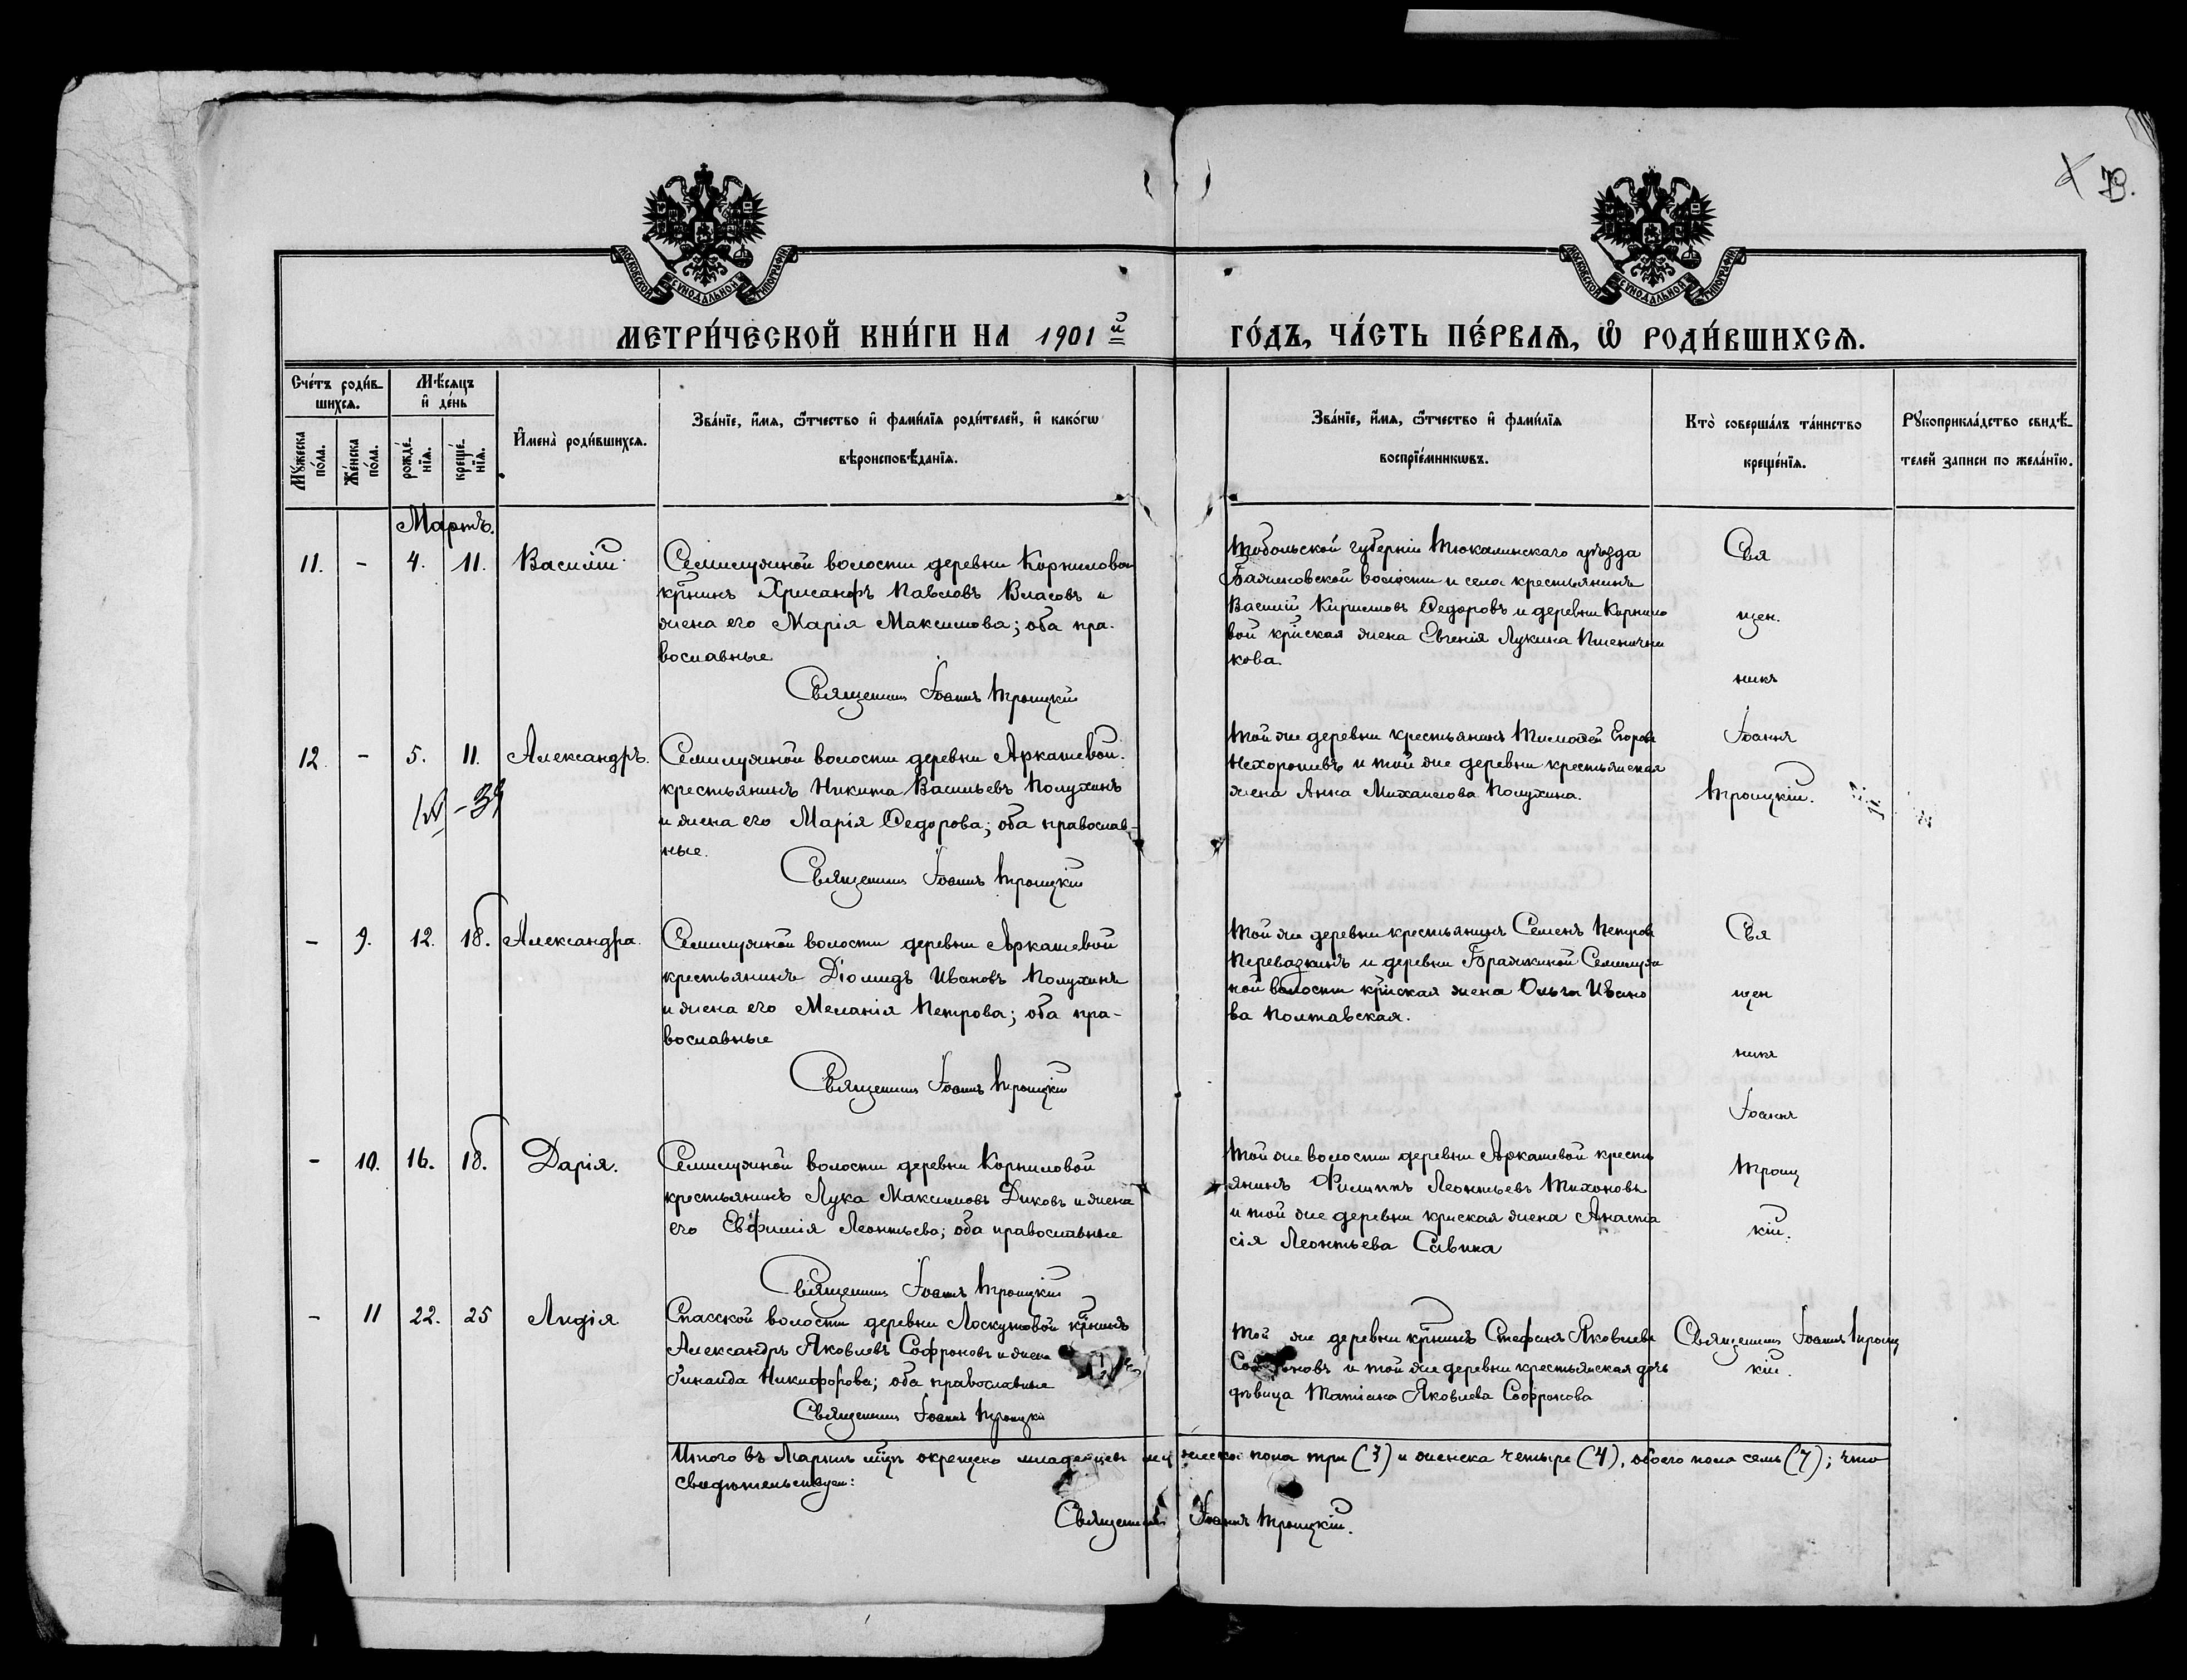 73.
МОСКОВСКОЙ СѴНОДАЛЬНОЙ ТИПОГРАФІИ
МОСКОВСКОЙ СѴНОДАЛЬНОЙ ТИПОГРАФІИ
МЕТРИ́ЧЕСКОЙ КНИ́ГИ НА 1901 й ГО́ДЪ, ЧА́СТЬ ПЕ́РВАѦ, Ѡ҆ РОДИ́ВШИХСѦ.
Сче́тъ роди́в-
шихсѧ.
Мꙋ́жеска по́ла.
Же́нска по́ла.
Мѣ́сѧцъ
и҆ де́нь
рожде́-
нїѧ.
креще́-
нїѧ.
И҆мена̀ роди́вшихсѧ.
Зва́нїе, и҆́мѧ, ѻ҆́тчество и҆ фами́лїѧ роди́телей, и҆ како́гѡ
вѣроисповѣ́данїѧ.
Зва́нїе, и҆́мѧ, ѻ҆́тчество и҆ фами́лїѧ
воспрїе́мникѡвъ.
Кто̀ соверша́лъ та́инство
креще́нїѧ.
Рꙋкоприкла́дство свидѣ́-
телей записи по жела́нїю.
Мартъ.
11. - 4. 11. Василій
Семилужной волости деревни Корниловой
кр̃нинъ Хрисанфъ Павловъ Власовъ и
жена его Марія Максимова; оба пра-
вославные
Священникъ Іоаннъ Троицкій
Тобольской губерніи Тюкалинскаго уѣзда
волости и села крестьянинъ
Василій Кирилловъ Ѳедоровъ и деревни Корнило
вой кр̃нская жена Евгенія Лукина Пшенични
кова.
Свя
щен.
никъ
Іоаннъ
Троицкій.
12. - 5. 11. Александръ.
Семилужной волости деревни Аркашевой.
крестьянинъ Никита Васильевъ Полухинъ
и жена его Марія Ѳедорова; оба православ-
ные.
Священникъ Іоаннъ Троицкій
Той же деревни крестьянинъ Тимоѳей Егоровъ
Нехорошевъ и той же деревни крестьянская
жена Анна Михаилова Полухина.
- 9. 12. 18. Александра.
Семилужной волости деревни Аркашевой
крестьянинъ Діомидъ Ивановъ Полухинъ
и жена его Меланія Петрова; оба пра-
вославные
Священникъ Іоаннъ Троицкій
Той же деревни крестьянинъ Семенъ Петровъ
Перевазкинъ и деревни Бражкиной Семилуж
ной волости кр̃нская жена Ольга Ивано
ва Полтавская.
Свя
щен
никъ
Іоаннъ
Троиц
кій.
- 10. 16. 18. Дарія.
Семилужной волости деревни Корниловой
крестьянинъ Лука Максимовъ Диковъ и жена
его Евфимія Леонтьева; оба православные
Священникъ Іоаннъ Троицкій
Той же волости деревни Аркашевой кресть
янинъ Филиппъ Леонтьевъ Тихоновъ
и той же деревни кр̃нская жена Анаста
сія Леонтьева Савина
- 11 22. 25 Лидія
Спасской волости деревни Лоскутовой кр̃нинъ
Александръ Яковлевъ Софроновъ и жена
Зинаида Никифорова; оба православные
Священникъ Іоаннъ Троицкій
Той же деревни кр̃нинъ Стефанъ Яковлевъ
Софроновъ и той же деревни крестьянская дочь
дѣвица Татіана Яковлева Софронова
Священникъ Іоаннъ Троиц
кій.
Итого въ Мартѣ мц̃ѣ окрещено младенцевъ мужеска пола три (3) и женска четыре (4), обоего пола семь (7); что
свидѣтельствуемъ:
Священникъ Іоаннъ Троицкій.